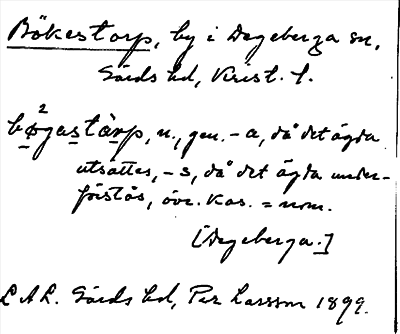 Bökestorp, by i Degeberga sn,
Gärds hd, Krist. l.
bø²gastàrp, n., gen. -a, då det ägda
utsättes, -s, då det ägda under-
förstås, övr. kas. = nom.
[Degeberga.]
L.A.L. Gärds hd, Per Larsson 1899.